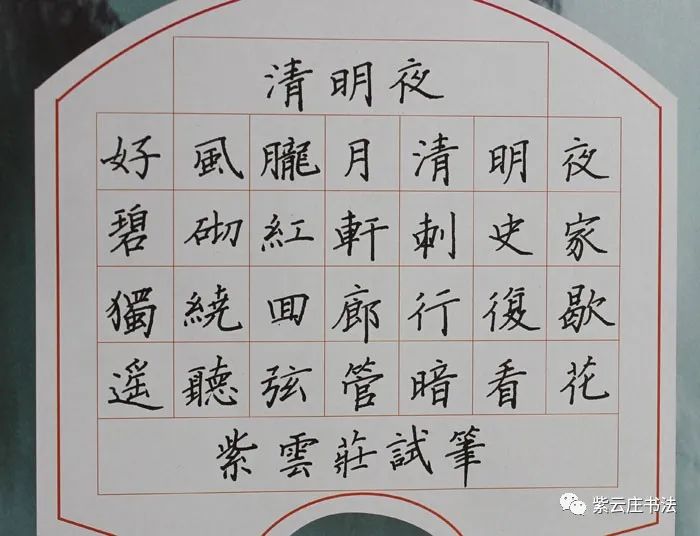 清明夜
好風朧月清明夜
碧砌紅軒刺史家
獨繞回廊行復歇
遥聽弦管暗看花
紫雲莊試筆
紫云庄书法